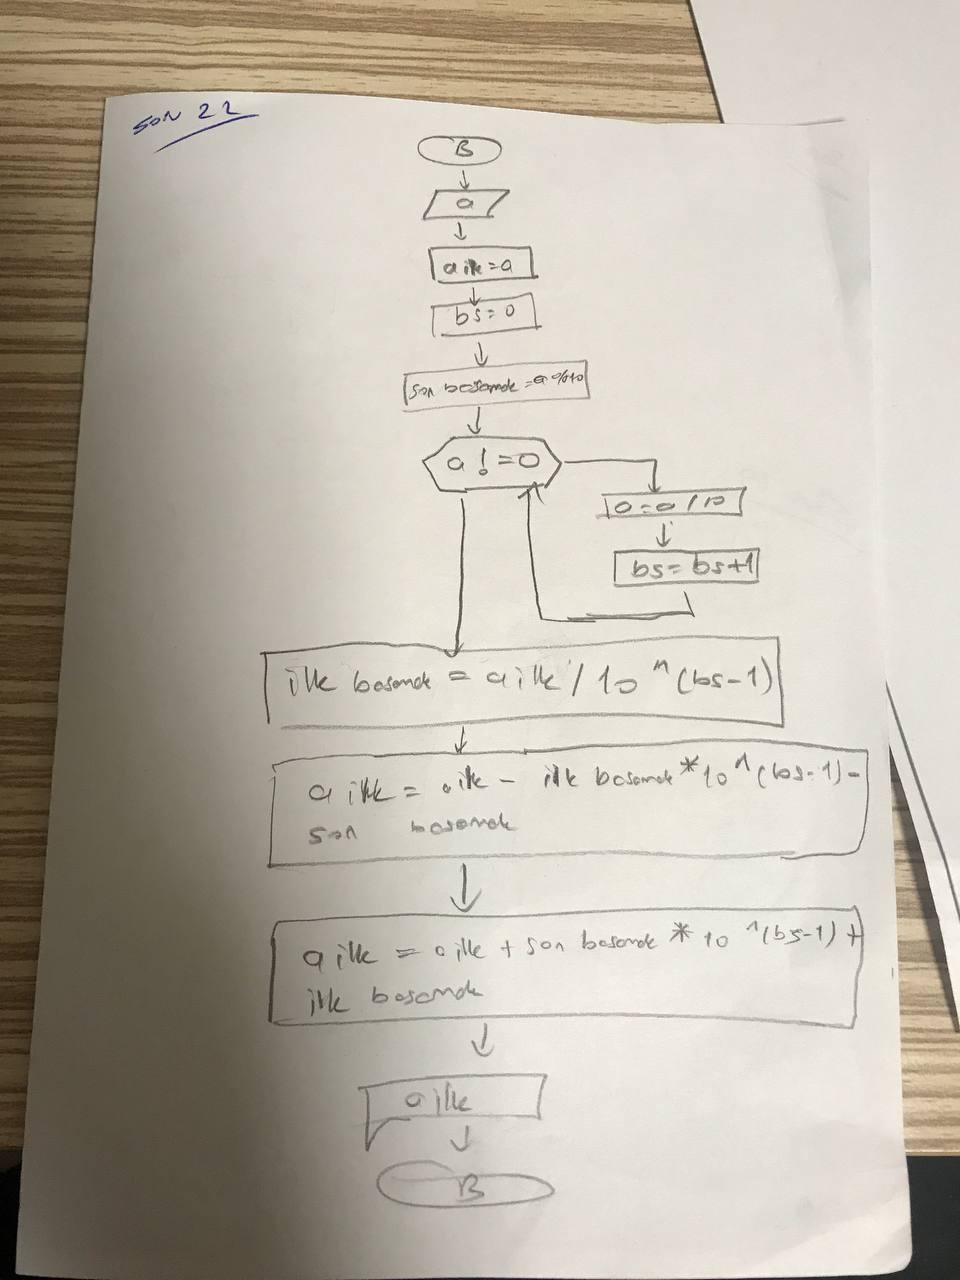 SON 22
B
a
a ilk = a
bs = 0
son basamak = a % 10
a != 0
a = a / 10
bs = bs+1
ilk basamak = a ilk / 10 ^ (bs-1)
a ilk = a ilk - ilk basamak * 10 ^ (bs-1) -
son basamak
a ilk = a ilk + son basamak * 10 ^ (bs-1) +
ilk basamak
a ilk
B